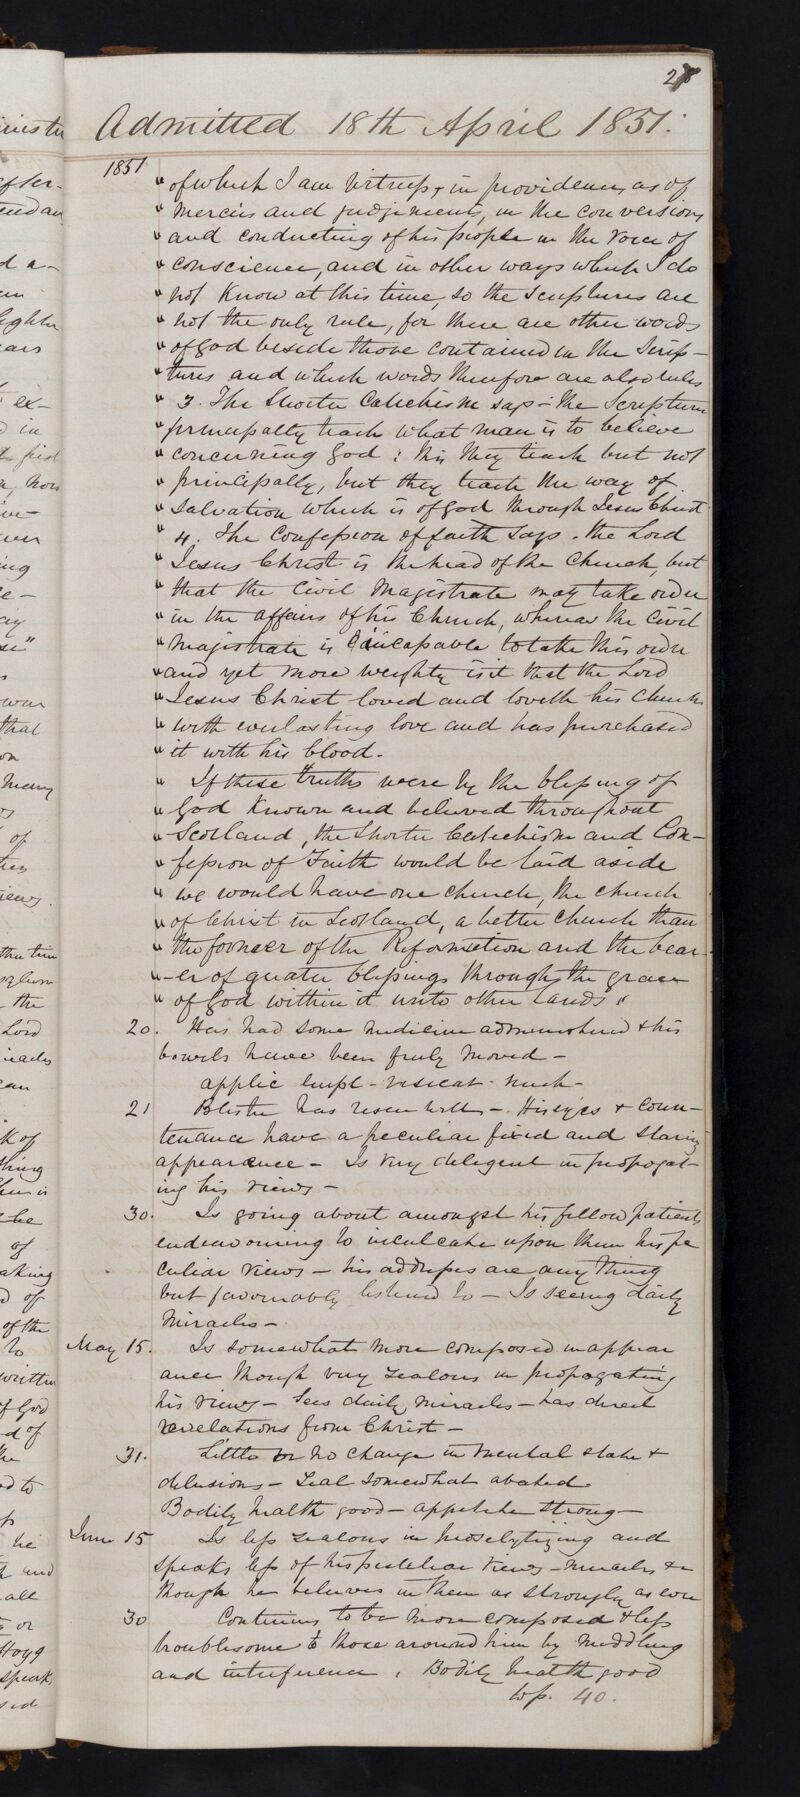 27
Admitted 18th April 1851.
1851
" of which I am witness, in providences as of
" mercies and judgements, in the conversions
" and conducting of his people in the voice of
" conscience, and in other ways which I do
" not know at this time, so the scriptures are
" not the only rule, for there are other words
" of god beside those contained in the Scrip-
" tures and which words therefore are also rules
" 3. The Shorter Catechism says - the Scriptures
" principally teach what man is to believe
" concerning God : this they teach but not
" principally, but they teach the way of
" Salvation which is of God through Jesus Christ
" 4. The Confession of faith says. the Lord
" Jesus Christ is the head of the Church, but
" that the Civil Magistrate may take order
" in the affairs of his Church, whereas the Civil
" Magistrate is incapable to take this order
" and yet more weighty is it that the Lord
" Jesus Christ loved and loveth his Church
" with everlasting love and has purchased
" it with his blood.
" If these truths were by the blessing of
" God known and believed throughout
" Scotland, the Shorter Catechism and Con-
" fession of Faith would be laid aside
" we would have one church, the church
" of Christ in Scotland, a better Church than
" the former of the Reformation and the bear-
" -er of greater blessings through the grace
" of God within it unto other lands "
20. Has had some medicine administered & his
bowels have been freely moved -
applic Empl - vesicat. nuch -
21 Blister has risen well - His eyes & coun-
tenance have a peculiar fixed and staring
appearance - Is very diligent in propogat-
ing his views -
30. Is going about amongst his fellow patients
endeavouring to inculcate upon them his pe
culiar views - his addresses are any thing
but favourably listened to - Is seeing daily
Miracles -
May 15. Is somewhat more composed in appear
ance though very zealous in propagating
his views - Sees daily miracles - has direct
revelations from Christ -
31. Little or no change in mental state &
delusions - Zeal somewhat abated.
Bodily health good - appetite strong -
June 15 Is less zealous in proselytizing and
speaks less of his peculiar views - miracles &c
though he believes in them as strongly as ever
30 Continues to be more composed & less
troublesome to those around him by meddling
and interference. Bodily health good
40.